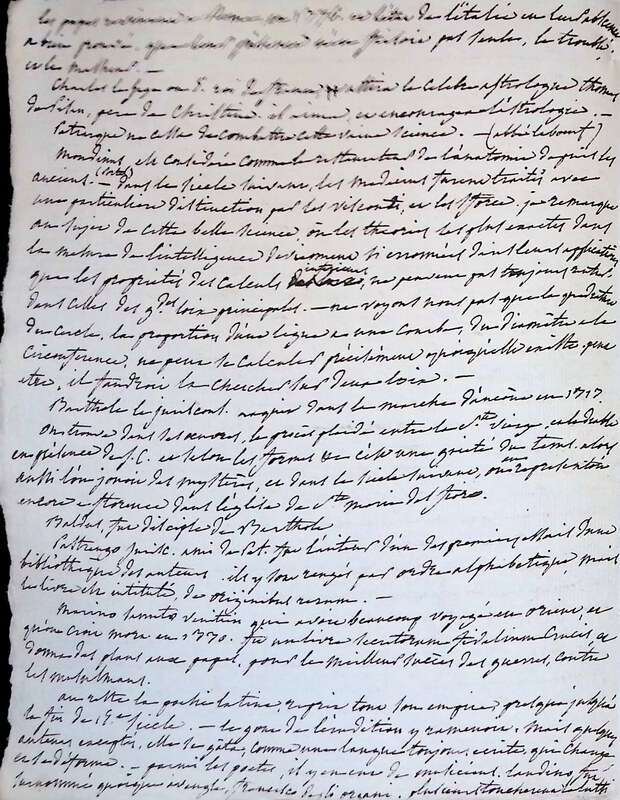 les papes revinrent a Rome en
a leur profit.
et les malheurs. —
Charles le sage ou 5. roi de france attira le celebre astrologue thomas
de Pisan, pere de Christine. il aima, et encouragea l'astrologie. —
Petrarque ne cessa de combattre cette vaine science. — (abbé lebeuf)
Mondinus, est considéré comme le restaurateur de l'anatomie d'après les
anciens. — dans le siecle suivant, les medecins furent traités avec
une particuliere distinction par les visconti, et les sforce. je remarque
au sujet de cette belle science, ou les theories les plus exactes dans
la mesure de l'intelligence deviennent si erronnées dans leurs applications
que les proprietés des calculs ne peuvent pas toujours entrer
dans celles des g.des loix principales. — ne voyons nous pas que la quadrature
du cercle, la proportion d'une ligne a une courbe, du diamètre a la
circonference, ne peut se calculer précisément quoiqu'elle existe. peut
etre, il faudroit la chercher sur deux loix. —
Barthole le juriscons. naquit dans la marche d'ancône en 1317
on trouve dans ses oeuvres, le procès plaidé entre la S.te vierge, et le diable
en présence de J. C. et selon les formes c'est une gaieté du tems. alors
aussi l'on jouoit des mystères, et dans le siecle suivant, on en representoit
encore a florence dans l'église de S.te marie des fiors.
Baldus, fut disciple de Barthole
Pastrengo jurisc. ami de Pet. fut l'auteur d'un des premiers essais d'une
bibliothèque des auteurs. ils y sont rangés par ordre alphabetique mais
le livre est intitulé, de originibus rerum —
Marino sanuto venitien qui avoit beaucoup voyagé en orient, et
qu'on croit mort en 1330. fit un livre secretorum fidelium Crucis, et
donna des plans aux papes, pour le meilleur succès des guerres, contre
les musulmans.
au reste la poesie latine, reprit tout son empire presque jusqu'à
la fin du 15.e siecle. — le gout de l'erudition y ramenoit. Mais quelques
auteurs exceptés, elle se gâta, comme une langue toujours ecrite, qui change
et se deforme. — parmi les poetes, il y en eut de musiciens. landino, fut
surnommé quoique aveugle, francesco degli organi. plusieurs